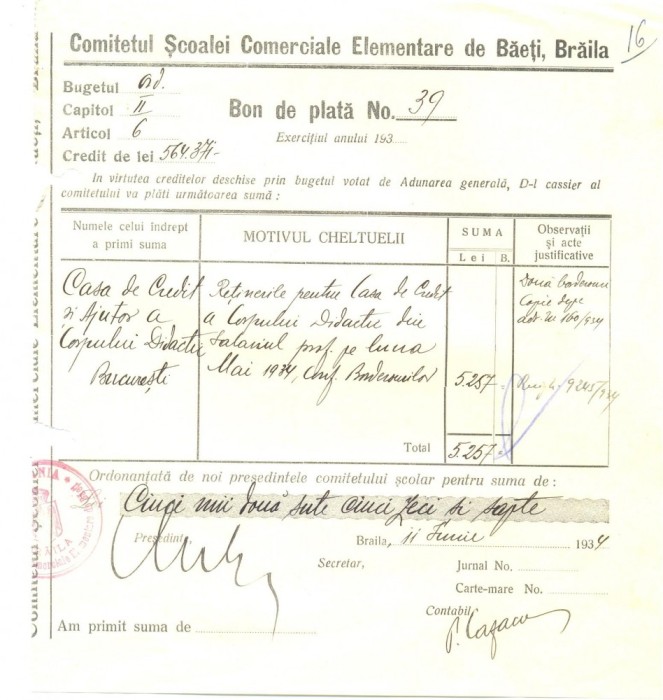 16
Comitetul Școalei Comerciale Elementare de Băeți, Brăila
Bugetul ord.
Capitol II
Articol 6
Credit de lei 564.371-
Bon de plată No. 39
Exercițiul anului 193
In virtutea creditelor deschise prin bugetul votat de Adunarea generală, D-l cassier al
comitetului va plăti următoarea sumă :
Numele celui îndrept
a primi suma
MOTIVUL CHELTUELII
SUMA
Lei B.
Observații
și acte
justificative
Casa de Credit
și Ajutor a
Corpului Didactic
București
Reținerile pentru Casa de Credit
a Corpului Didactic din
salariul prof. pe luna
Mai 1934, conf. Borderourilor
5.257
Două borderouri
Copie depe
adr. No 160/934
9245/934
Total 5.257
Ordonanțată de noi președintele comitetului școlar pentru suma de :
Cinci mii două sute cinci zeci si șapte
Președint,
Braila, 11 Iunie 1934
Secretar,
Jurnal No.
Carte-mare No.
Contabil,
Am primit suma de